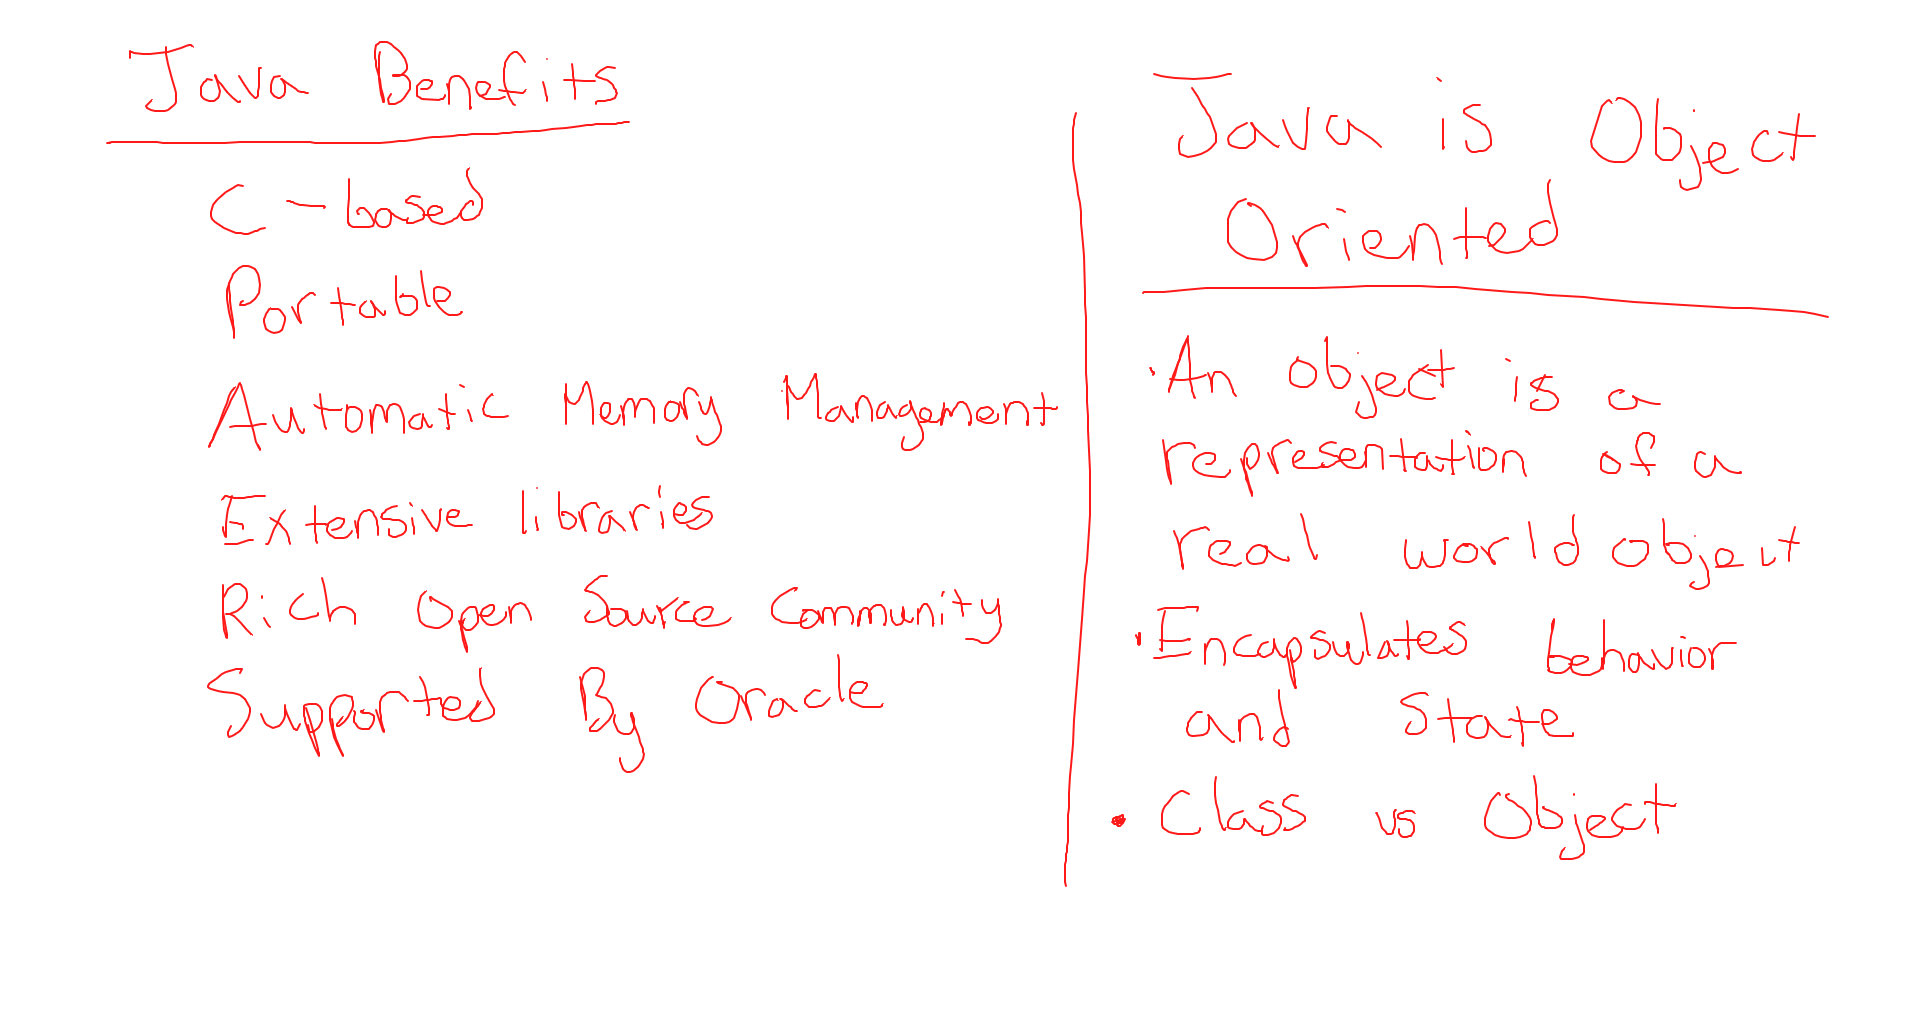 Java Benefits
C-based
Portable
Automatic Memory Management
Extensive libraries
Rich Open Source Community
Supported By Oracle
Java is Object
Oriented
• An object is a
representation of a
real world object
• Encapsulates behavior
and State
• Class vs Object